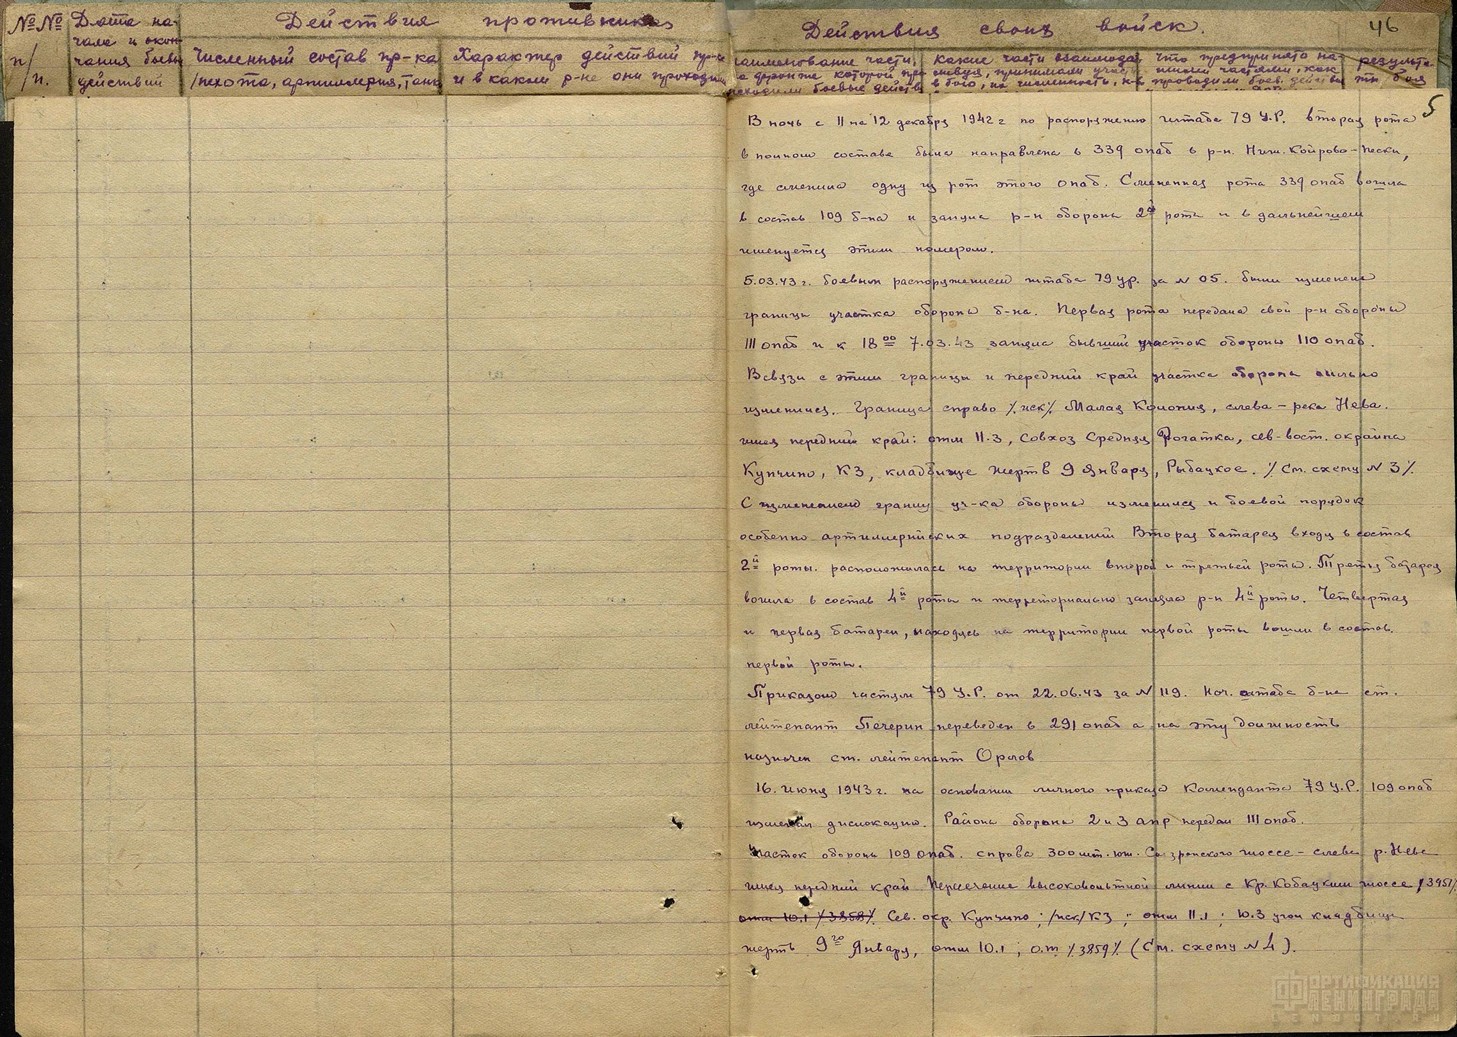 №№ п/п.
Дата начала и окончания боевы действий
Действия противника
Численный состав пр-ка /пехота, артиллерия, танк
Характер действий пр-ка и в каком р-не они проходили
Действия своих войск.
46
наименование части,
какие части взаимодей
что предпринято на-
результа
ты боя
5
В ночь с 11 на 12 декабря 1942 г по распоряжению штаба 79 У.Р. вторая рота
в полном составе была направлена в 339 опаб в р-н. Ниж. Койрово-Пески,
где сменила одну из рот этого опаб. Смененная рота 339 опаб вошла
в состав 109 б-на и заняла р-н обороны 2й роты и в дальнейшем
именуется этим номером.
5.03.43 г. боевым распоряжением штаба 79 ур. за N 05. были изменены
границы участка обороны б-на. Первая рота передала свой р-н обороны
111 опаб и к 18 00 7.03.43 заняла бывший участок обороны 110 опаб.
Всвязи с этим границы и передний край участка обороны сильно
изменились. Граница справо /иск/ Малая Колония, слева - река Нева.
имея передний край: отм 11.3, совхоз Средняя Рогатка, сев-вост. окраина
Купчино, КЗ, кладбище Жертв 9 Января, Рыбацкое. /См. схему N 3/
С изменением границ уч-ка обороны изменился и боевой порядок
особенно артиллерийских подразделений Вторая батарея входя в состав
2й роты. расположилась на территории второй и третьей роты. Третья батарея
вошла в состав 4й роты и территориально заняла р-н 4й роты. Четвертая
и первая батареи, находясь на территории первой роты вошли в состав.
первой роты.
Приказом частям 79 У.Р. от 22.06.43 за N 119. Нач. штаба б-на ст.
лейтенант Печерин переведен в 291 опаб а на эту должность
назначен ст. лейтенант Орлов
16. Июня 1943 г. на основании личного приказа Коменданта 79 У.Р. 109 опаб
изменил дислокацию. Района обороны 2 и 3 апр передал 111 опаб.
Участок обороны 109 опаб. справа 300 мт. юж. шоссе - слева р. Нева
имея передний край Пересечение высоковольтной линии с шоссе /3951/
отм 10.1 /3858/ Сев. окр. Купчино; /иск/ КЗ; отм 11.1; 10.3 угол кладбища
жертв 9го Января, отм 10.1; о.т /3859/ (См. схему N 4).
ФОРТИФИКАЦИЯ
ЛЕНИНГРАДА